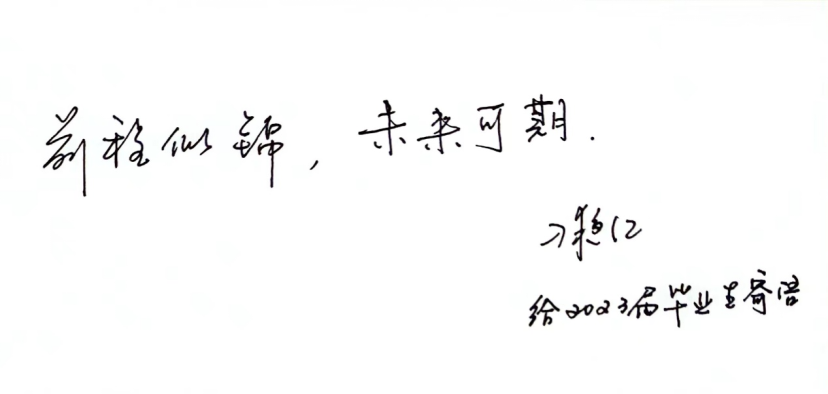 前程似锦，未来可期.
刁稳亿
给2023届毕业生寄语